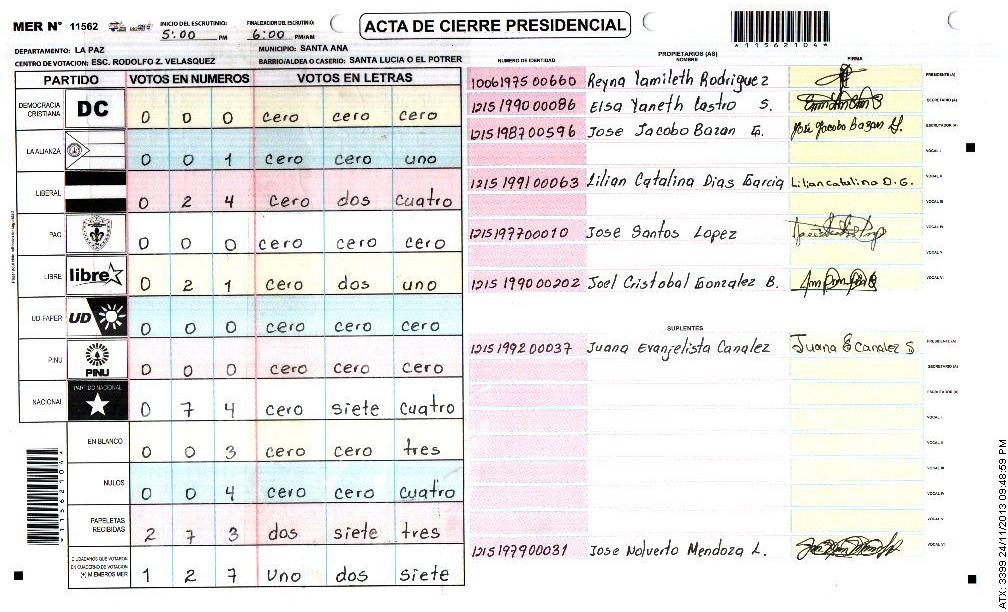 MER N° 11562 INICIO DEL ESCRUTINIO: 5:00 PM FINALIZACION DEL ESCRUTINIO: 6:00 PM/AM
ACTA DE CIERRE PRESIDENCIAL
*11562104*
DEPARTAMENTO: LA PAZ MUNICIPIO: SANTA ANA
CENTRO DE VOTACION: ESC. RODOLFO Z. VELASQUEZ BARRIO/ALDEA O CASERIO: SANTA LUCIA O EL POTRER
PARTIDO VOTOS EN NUMEROS VOTOS EN LETRAS
DEMOCRACIA CRISTIANA DC 0 0 0 cero cero cero
LA ALIANZA 0 0 1 cero cero uno
LIBERAL 0 2 4 cero dos cuatro
PAC 0 0 0 cero cero cero
LIBRE libre 0 2 1 cero dos uno
UD-FAPER UD 0 0 0 cero cero cero
PINU PINU 0 0 0 cero cero cero
NACIONAL PARTIDO NACIONAL 0 7 4 cero siete cuatro
EN BLANCO 0 0 3 cero cero tres
NULOS 0 0 4 cero cero cuatro
PAPELETAS RECIBIDAS 2 7 3 dos siete tres
CIUDADANOS QUE VOTARON EN CUADERNO DE VOTACION (+) MIEMBROS MER 1 2 7 uno dos siete
*11562104*
PROPIETARIOS (AS)
NUMERO DE IDENTIDAD NOMBRE FIRMA
1006197500660 Reyna Yamileth Rodriguez PRESIDENTE(A)
1215199000086 Elsa Yaneth Castro S. SECRETARIO (A)
1215198700596 Jose Jacobo Bazan G. Jose Jacobo Bazan G. ESCRUTADOR (A)
VOCAL I
1215199100063 Lilian Catalina Dias Garcia Lilian catalina D. G. VOCAL II
VOCAL III
1215197700010 Jose Santos Lopez VOCAL IV
VOCAL V
1215199000202 Joel Cristobal Gonzalez B. VOCAL VI
SUPLENTES
1215199200037 Juana Evangelista Canalez Juana E Canalez S PRESIDENTE (A)
SECRETARIO (A)
ESCRUTADOR (A)
VOCAL I
VOCAL II
VOCAL III
VOCAL IV
VOCAL V
1215197900031 Jose Nolverto Mendoza L. VOCAL VI
ATX: 3399 24/11/2013 09:48:59 PM